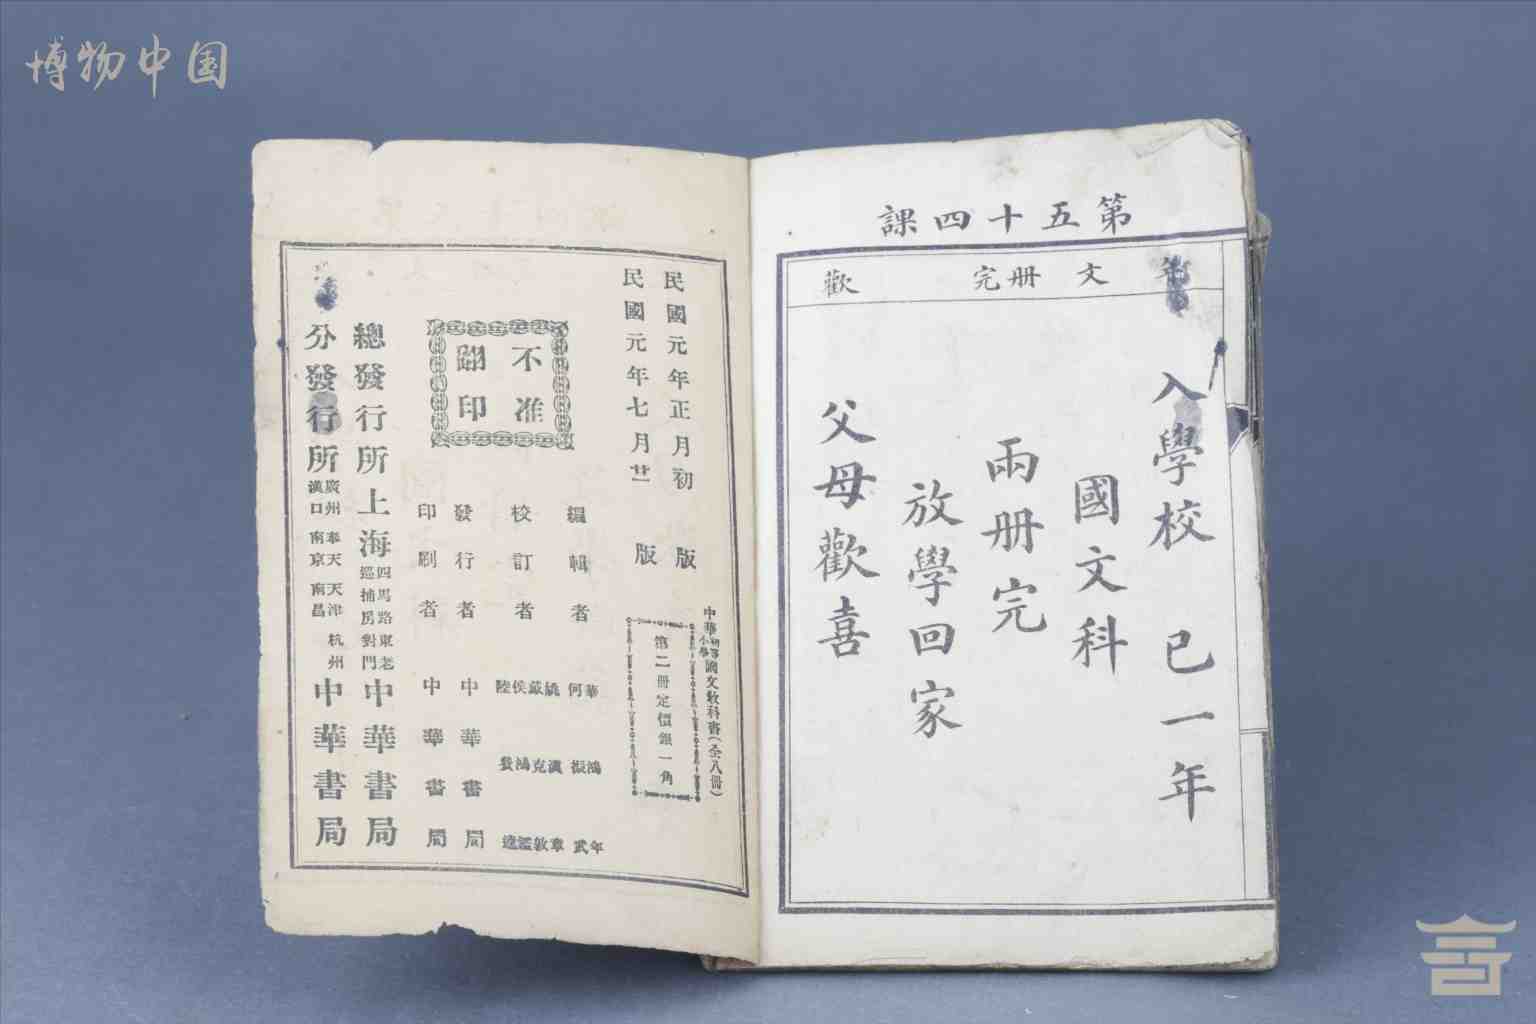 博物中国
第五十四課
年 文 册 完 歡
入學校 已一年
國文科
兩册完
放學回家
父母歡喜
中華初等小學國文教科書(全八冊)
第二冊定價銀一角
民國元年正月初版
民國元年七月廿版
編輯者 華鴻年 何振武
校訂者 戴克敦 侯鴻鑑 陸費逵
發行者 中華書局
印刷者 中華書局
不准翻印
總發行所上海四馬路東老巡捕房對門中華書局
分發行所廣州 奉天 天津 杭州 漢口 南京 南昌 中華書局